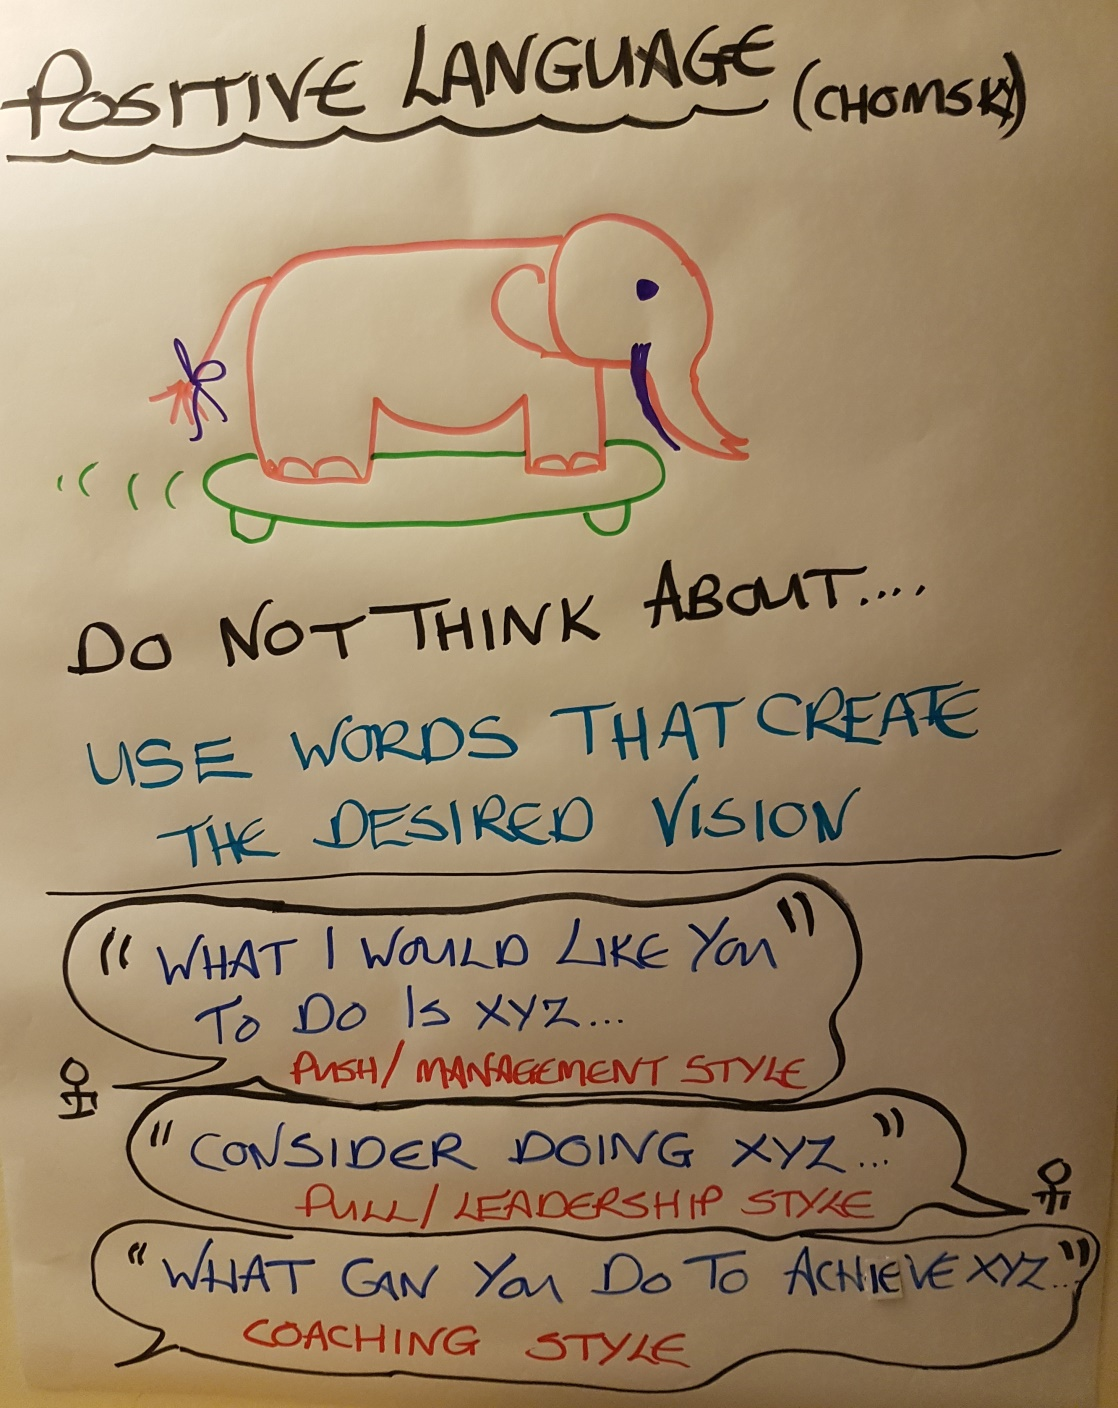 POSITIVE LANGUAGE (CHOMSKY)
DO NOT THINK ABOUT....
USE WORDS THAT CREATE
THE DESIRED VISION
"WHAT I WOULD LIKE YOU"
TO DO IS XYZ...
PUSH/MANAGEMENT STYLE
"CONSIDER DOING XYZ..."
PULL/LEADERSHIP STYLE
"WHAT CAN YOU DO TO ACHIEVE XYZ..."
COACHING STYLE